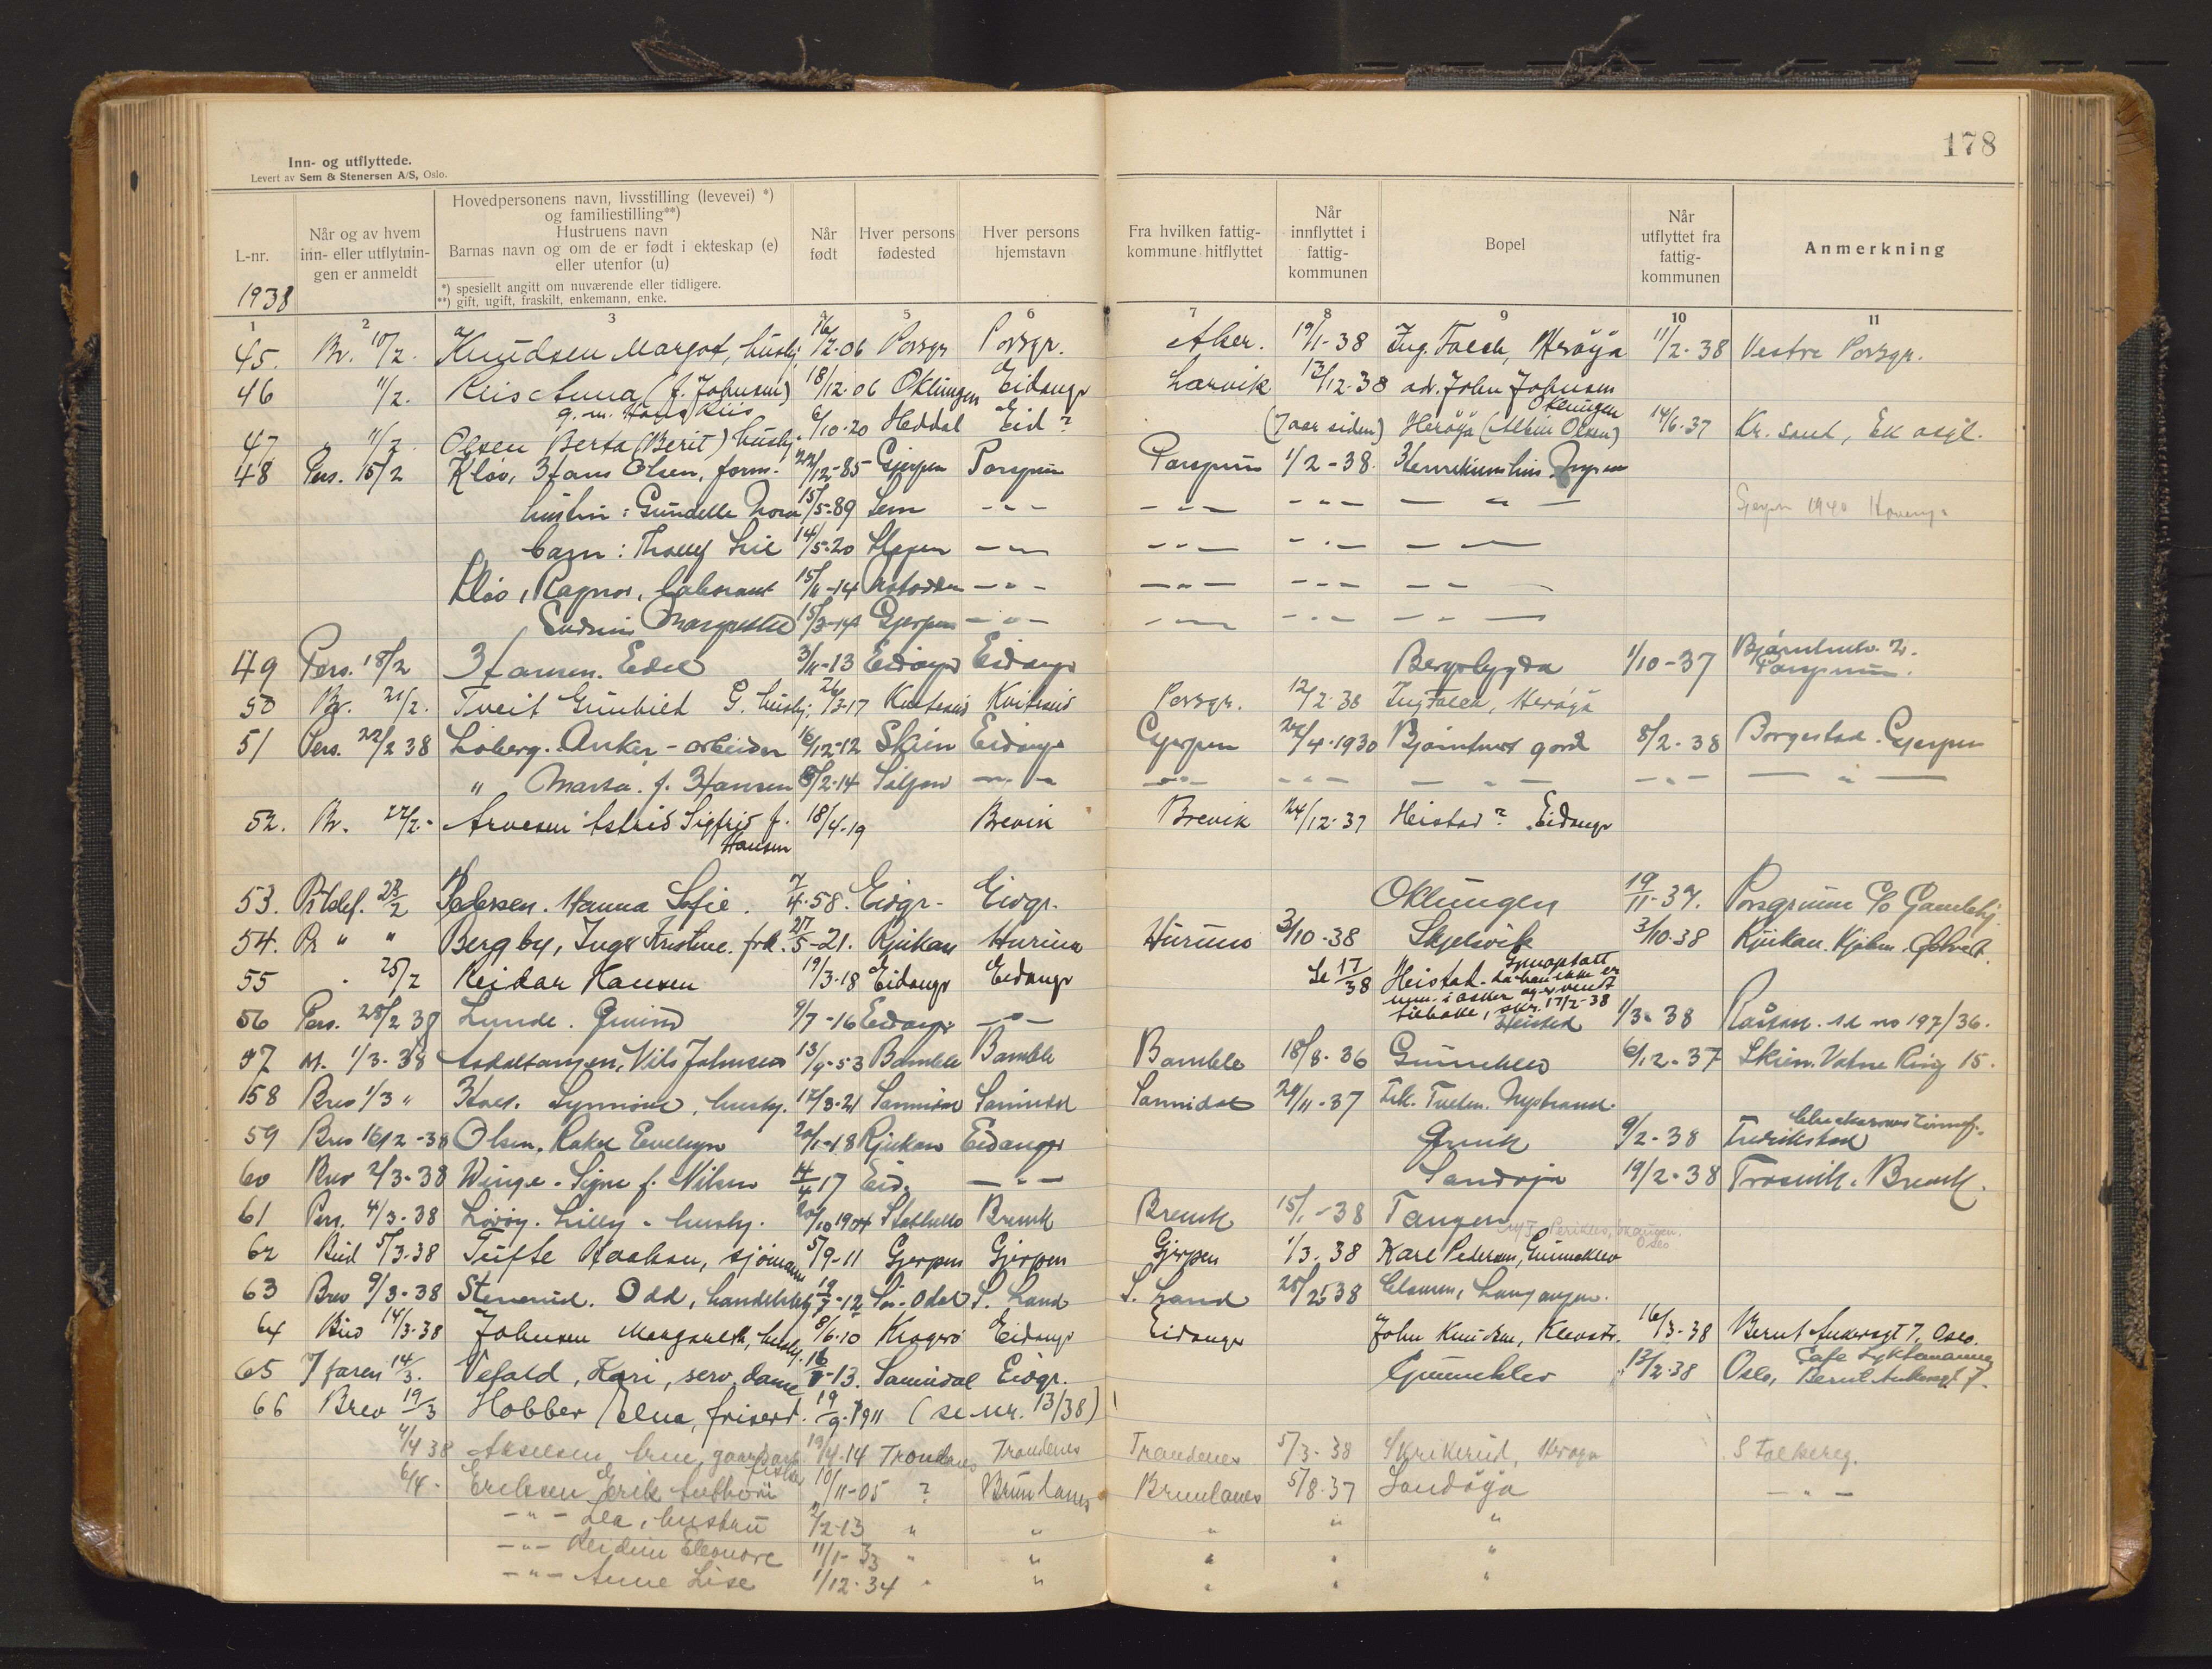 178
Inn- og utflyttede.
Levert av Sem & Stenersen A/S, Oslo.
L-nr.
1938
Når og av hvem
inn- eller utflytnin-
gen er anmeldt
Hovedpersonens navn, livsstilling (levevei) *)
og familiestilling**)
Hustruens navn
Barnas navn og om de er født i ekteskap (e)
eller utenfor (u)
*) spesiellt angitt om nuværende eller tidligere.
**) gift, ugift, fraskilt, enkemann, enke.
Når
født
Hver persons
fødested
Hver persons
hjemstavn
Fra hvilken fattig-
kommune hitflyttet
Når
innflyttet i
fattig-
kommunen
Bopel
Når
utflyttet fra
fattig-
kommunen
Anmerkning
1 2 3 4 5 6 7 8 9 10 11
45. Br. 10/2. Knudsen Margot, hushj. 16/2-06 Porsgr Porsgr. Aker. 19/1-38 Ing. Falck, Herøya 11/2-38 Vestre Porsgr.
46 11/2. Riis Anna (f. Johnsen) 18/12-06 Oklungen Eidanger Larvik 13/12-38 adr. John Johnsen
g. m. Hans Riis Oklungen
47 " 11/2. Olsen Berta (Berit) hushj. 6/10-20 Heddal Eid? (7 aar siden) Herøya (Albin Olsen) 14/6-37 Kr. sand,
48 Pers. 15/2 Kløv, Hans Olsen, form. 22/12-85 Gjerpen Porsgrunn Porsgrunn 1/2-38.
hustru: Gunelle Nora 15/5-89 Sem - " - - " - - " - - " - 1940
barn: 14/5-20 - " - - " - - " - - " -
Kløv, Ragnar, laborant 15/11-14 Notodden - " - - " - - " - - " -
Margrethe 15/3-14 Gjerpen - " - - " - - " - - " -
49 Pers. 18/2 Hansen. Edel 3/11-13 Eidanger Eidanger Bergsbygda 1/10-37 Porsgrunn.
50 Br. 21/2. Tveit Gunhild G. hushj. 26/3-17 Kviteseid Kviteseid Porsgr. 12/2-38 Ing Falck, Herøya
51 Pers. 22/2 38 Loberg. Anker - arbeider 16/12-12 Skien Eidanger Gjerpen 24/4-1930 Bjørntvet gård 8/2-38 Borgestad. Gjerpen
" Marta. f. Hansen 6/2-14 Siljan - " - - " - - " - - " - - " - - " -
52. Br. 22/2.- Arvesen Astrid Sigfrid f. 18/4-19 Brevik Brevik 24/12-37 Heistad? Eidanger
Hansen
53. 23/2 Pedersen. Hanna Sofie. 7/4-58. Eidgr- Eidgr. Oklungen 19/11-37. Porsgrunn c/o Gamlehj.
54. Br " " Bergby, Inger Kristine. frk. 27/5-21. Rjukan Hurum Hurum 3/10-38 Skjelsvik 3/10 38 Rjukan.
55 " 25/2 Reidar Hansen 19/3-18 Eidanger Eidanger Se 17/38 Heistad - Gjenopptatt
da han ikke er
tilbake, skr. 17/2-38
56 Pers. 28/2 38 Lunde. 9/7-16 Eidanger - " - Heistad 1/3-38 Råskar. se no 197/36.
57 M. 1/3-38 Asdaltangen, Nils Johnsen 13/9-53 Bamble Bamble Bamble 18/8-36 Gunneklev 6/12-37 Skien. Vatne Ring 15.
158 Brev 1/3 " Synnøve, hushj. 17/3-21 Sannidal Sannidal Sannidal 29/11-37 Frk. Nystrand.
59 Brev 16/2-38 Olsen. Rakel Evelyn 20/1-18 Rjukan Eidanger 9/2-38 Fredrikstad
60 Brev 2/3-38 Winge. Signe f. Nilsen 14/4 17 Eid. - " - Sandøya 19/2-38 Trosvik. Brevik.
61 Pers. 4/3-38 Lövöy. Lilly - hushj. 20/10 1904 Stathelle Brevik Brevik 15/1-38 Tangen
62 Bud 5/3-38 Tufte Haakon, sjömann 5/9-11 Gjerpen Gjerpen Gjerpen 1/3-38 Karl Pedersen, Gunneklev
Oslo
63 Brev 9/3-38 Stenerud. Odd, handelsbetj. 19/7-12 Sør-Odal S. Land S. Land 25/2 38 Langangen.
64 Bud 14/3-38 Johnsen Margareth, hushj. 8/6-10 Kragerø Eidanger Eidanger John Knudsen, Klevstr. 16/3-38 Bernt Ankersgt 7, Oslo.
65 14/3. Vefald, Kari, serv. dame 16/8-13. Sannidal Eidgr. Gunneklev 13/2-38 Oslo, Cafe Lyktemannen
Bernt Ankersgt 7.
66 Brev 19/3 Hobber Elna, friserd. 19/9-1911 (se nr. 13/38)
4/4 38 Akselsen 19/4-14 Trondenes Trondenes Trondenes 5/3-38 Skrikerud, Herøya Stolbereg.
6/4- Eriksen Erik Anthoni 10/11-05 ? Brunlanes Brunlanes 5/8-37 Sandøya - " -
fisker
- " - Lea, hustru 2/2-13 " " " " "
- " - Reidun Eleonore 11/1-33 " " " " "
- " - Anne Lise 1/12-34 " " " " "